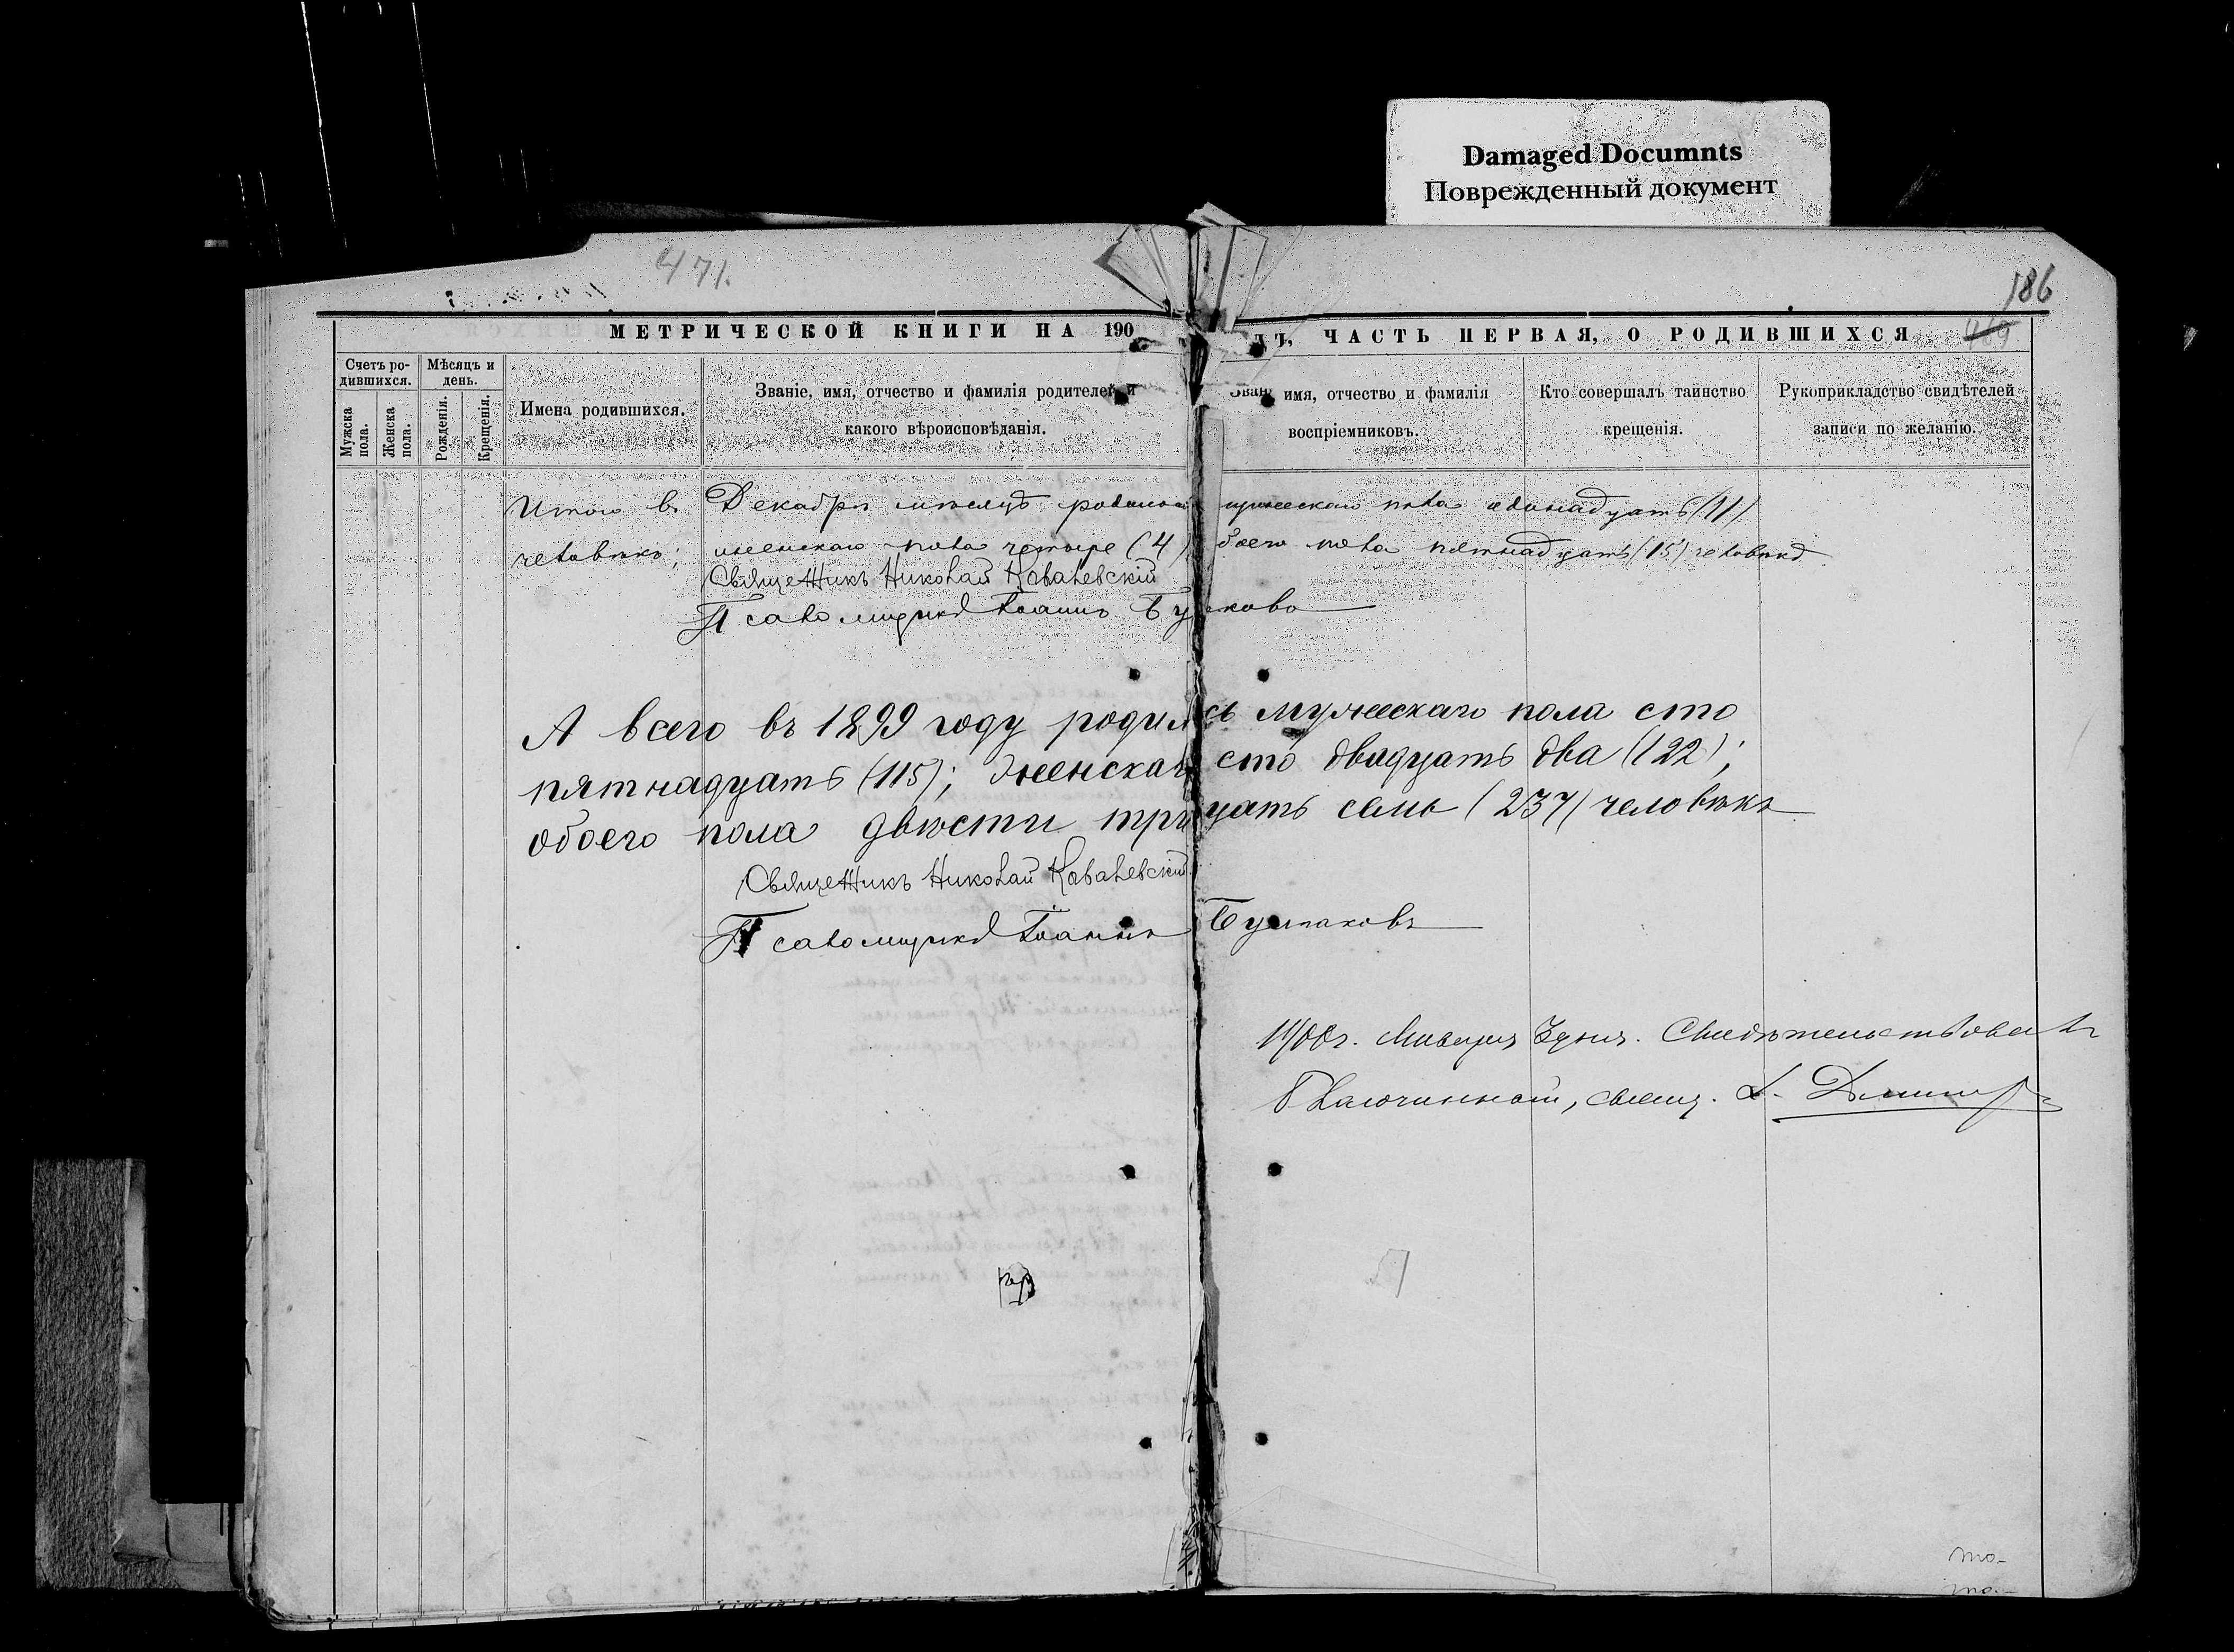 Damaged Documnts
Поврежденный документ
471.
186
469
МЕТРИЧЕСКОЙ КНИГИ НА 190 ДЪ, ЧАСТЬ ПЕРВАЯ, О РОДИВШИХСЯ
Счетъ ро-
дившихся.
Мужска
пола.
Женска
пола.
Мѣсяцъ и
день.
Рожденія.
Крещенія.
Имена родившихся.
Званіе, имя, отчество и фамилія родителей и
какого вѣроисповѣданія.
Зван имя, отчество и фамилія
воспріемниковъ.
Кто совершалъ таинство
крещенія.
Рукоприкладство свидѣтелей
записи по желанію.
Итого въ Декабрѣ мѣсяцѣ родилось мужескаго пола одинадцать (11)
человѣкъ; женскаго пола четыре (4) обоего пола пятнадцать (15) человѣкъ
Священникъ Николай Ковалевскій
Псаломщикъ Іоаннъ Бу
А всего въ 1899 году родилсь мужескаго пола сто
пятнадцать (115); женскаго сто двадцать два (122);
обоего пола двѣсти тридцать семь (237) человѣкъ
Священникъ Николай Ковалевскій
Псаломщикъ Іоаннъ
1900г. Свидѣтельствовалъ
Благочинный, свящ.